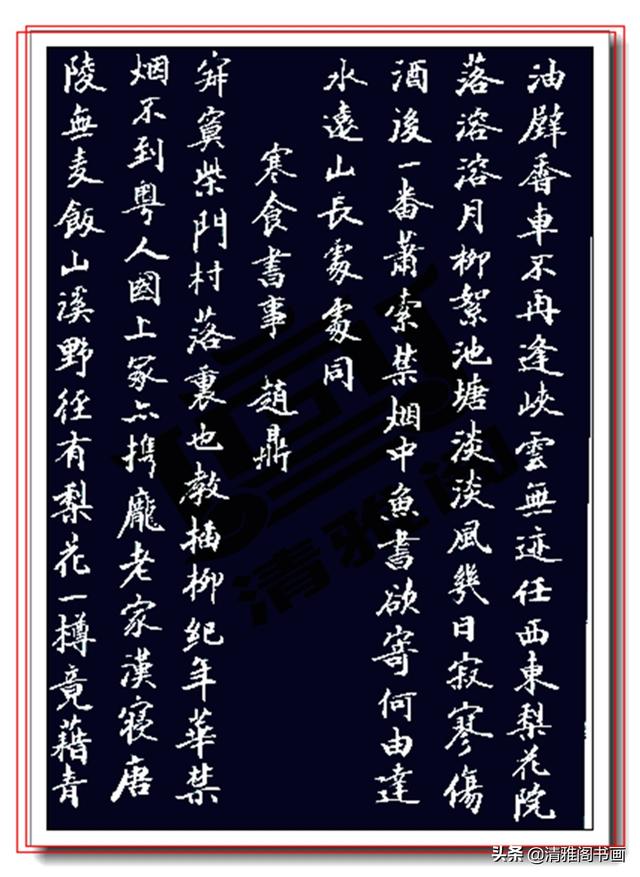 油壁香車不再逢峽雲無迹任西東梨花院
落溶溶月柳絮池塘淡淡風幾日寂寥傷
酒後一番蕭索禁烟中魚書欲寄何由達
水遠山長處處同
寒食書事 趙鼎
寂寞柴門村落裏也教插柳紀年華禁
烟不到粵人國上冢亦攜龐老家漢寢唐
陵無麦飯山溪野徑有梨花一樽竟藉青
清雅阁
头条 @清雅阁书画